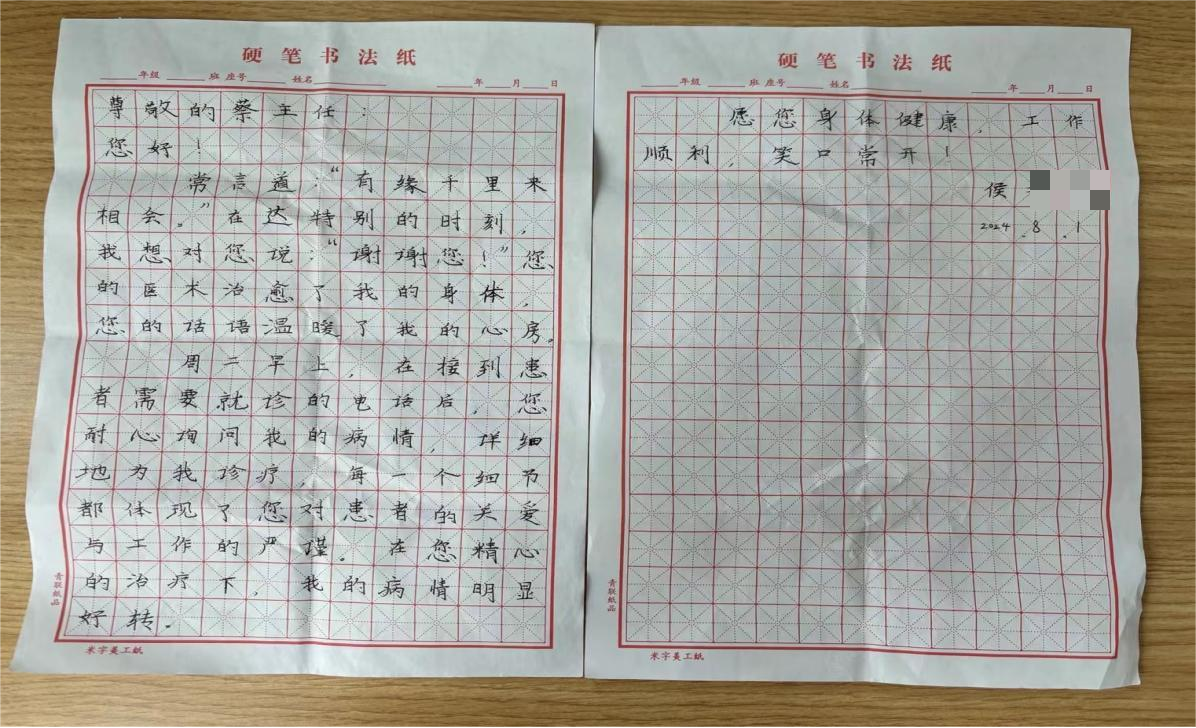 硬笔书法纸
年级 班 座号 姓名 年 月 日
尊敬的蔡主任：
您好！
常言道：“有缘千里来
相会。”在达特别的时刻，
我想对您说：“谢谢您！”您
的医术治愈了我的身体，
您的话语温暖了我的心房。
周二早上，在接到患
者需要就诊的电话后，您
耐心询问我的病情，详细
地为我诊疗，每一个细节
都体现了您对患者的关爱
与工作的严谨。在您精心
的治疗下，我的病情明显
好转。
青联纸品
米字美工纸
硬笔书法纸
年级 班 座号 姓名 年 月 日
愿您身体健康，工作
顺利，笑口常开！
侯
2024.8.1
青联纸品
米字美工纸